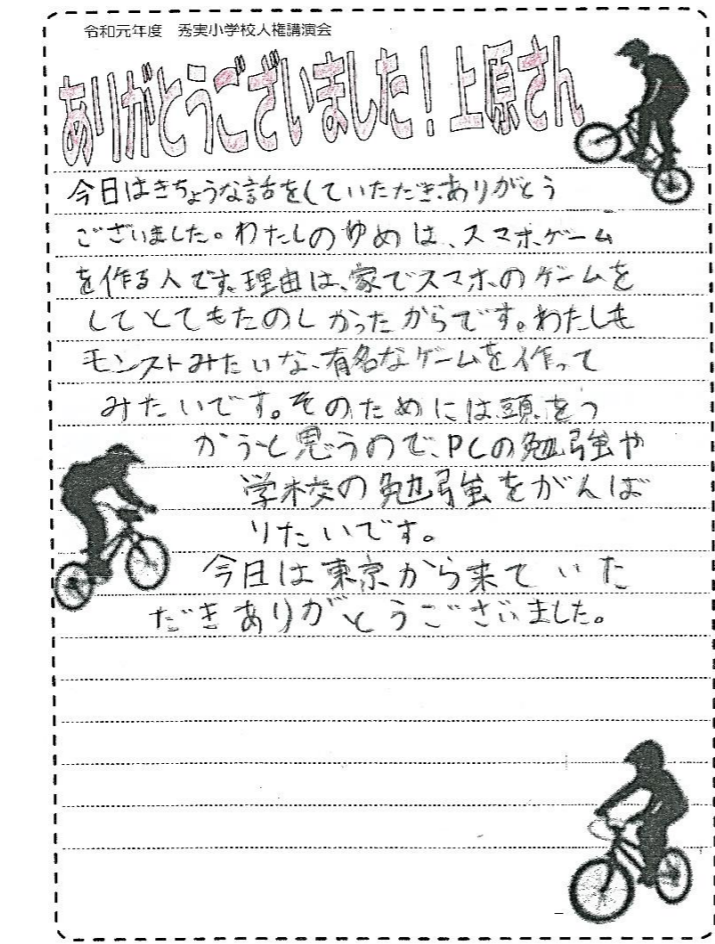 令和元年度　秀実小学校人権講演会
ありがとうございました！上原さん
今日はきちょうな話をしていただき、ありがとう
ございました。わたしのゆめは、スマホゲーム
を作る人です。理由は、家でスマホのゲームを
してとてもたのしかったからです。わたしも
モンストみたいな、有名なゲームを作って
みたいです。そのためには頭をつ
かうと思うので、PCの勉強や
学校の勉強をがんば
りたいです。
今日は東京から来ていた
だきありがとうございました。